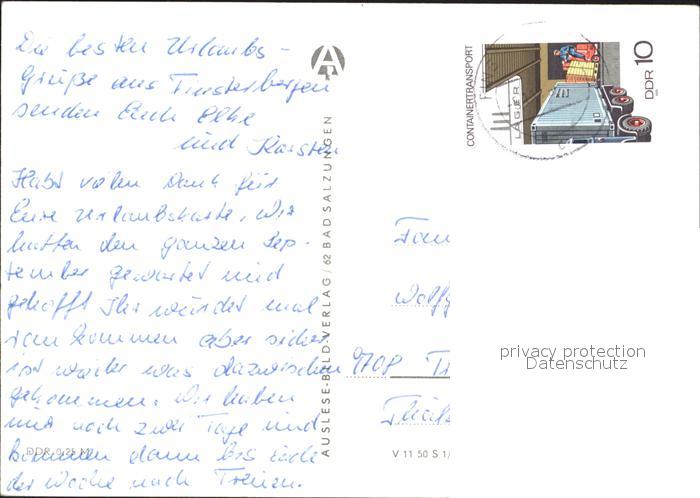 Die besten Urlaubs-
grüße aus Finsterbergen
senden Euch Elke
und Karsten
Habt vielen Dank für
Eure Urlaubskarte. Wir
hatten den ganzen Sep-
tember gewartet und
gehofft Ihr würdet mal
ran kommen aber sicher
ist wieder was dazwischen
gekommen. Wir haben
nur noch zwei Tage und
kommen dann bis Ende
der Woche nach
DDR 0,25 M
A
AUSLESE-BILD-VERLAG / 62 BAD SALZUNGEN
CONTAINERTRANSPORT
LAGER
DDR 10
Fam
Wolfg
privacy protection
Datenschutz
V 11 50 S 1/